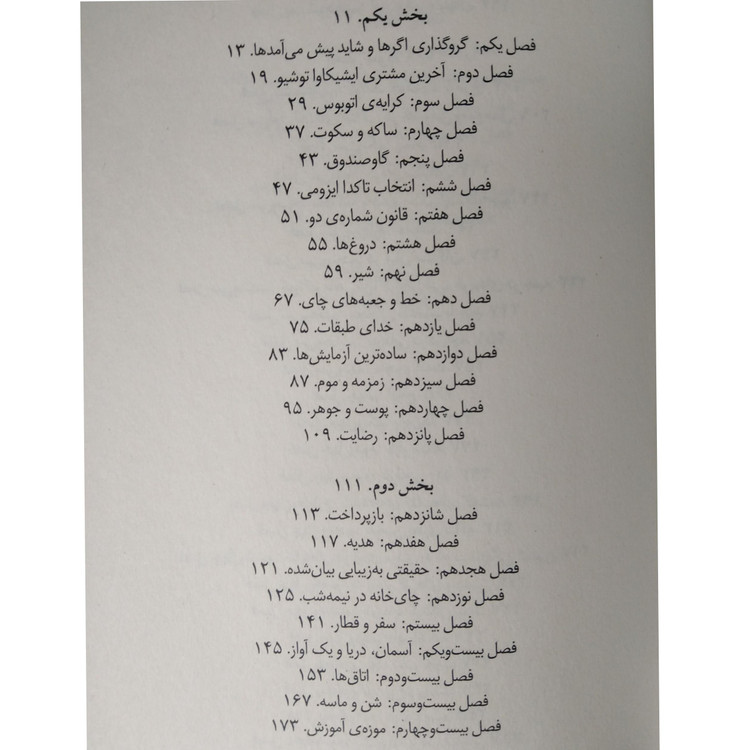 بخش یکم. ۱۱
فصل یکم: گروگذاری اگرها و شاید پیش می‌آمدها. ۱۳
فصل دوم: آخرین مشتری ایشیکاوا توشیو. ۱۹
فصل سوم: کرایه‌ی اتوبوس. ۲۹
فصل چهارم: ساکه و سکوت. ۳۷
فصل پنجم: گاوصندوق. ۴۳
فصل ششم: انتخاب تاکدا ایزومی. ۴۷
فصل هفتم: قانون شماره‌ی دو. ۵۱
فصل هشتم: دروغ‌ها. ۵۵
فصل نهم: شیر. ۵۹
فصل دهم: خط و جعبه‌های چای. ۶۷
فصل یازدهم: خدای طبقات. ۷۵
فصل دوازدهم: ساده‌ترین آزمایش‌ها. ۸۳
فصل سیزدهم: زمزمه و موم. ۸۷
فصل چهاردهم: پوست و جوهر. ۹۵
فصل پانزدهم: رضایت. ۱۰۹
بخش دوم. ۱۱۱
فصل شانزدهم: بازپرداخت. ۱۱۳
فصل هفدهم: هدیه. ۱۱۷
فصل هجدهم: حقیقتی به‌زیبایی بیان‌شده. ۱۲۱
فصل نوزدهم: چای‌خانه در نیمه‌شب. ۱۲۵
فصل بیستم: سفر و قطار. ۱۴۱
فصل بیست‌ویکم: آسمان، دریا و یک آواز. ۱۴۵
فصل بیست‌ودوم: اتاق‌ها. ۱۵۳
فصل بیست‌وسوم: شن و ماسه. ۱۶۷
فصل بیست‌وچهارم: موزه‌ی آموزش. ۱۷۳